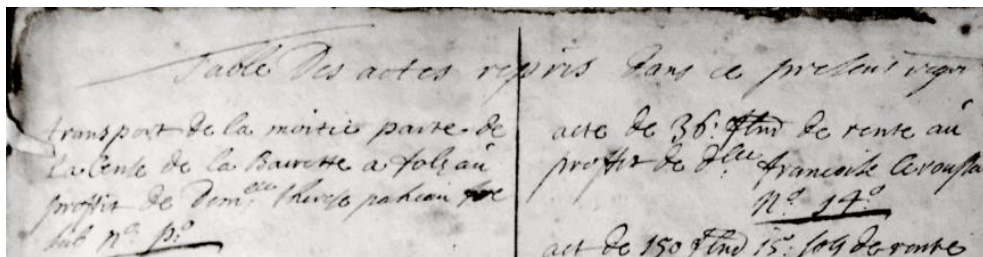 Table Des actes repris dans ce present regis
transport de la moitie parte de
la Cense de la Barrette a
proffit de Dem.elle therese
sub n.o p.o
acte de 36: de rente au
proffit de d.elle francoise
N.o 14.o
act de 150 15: de rente